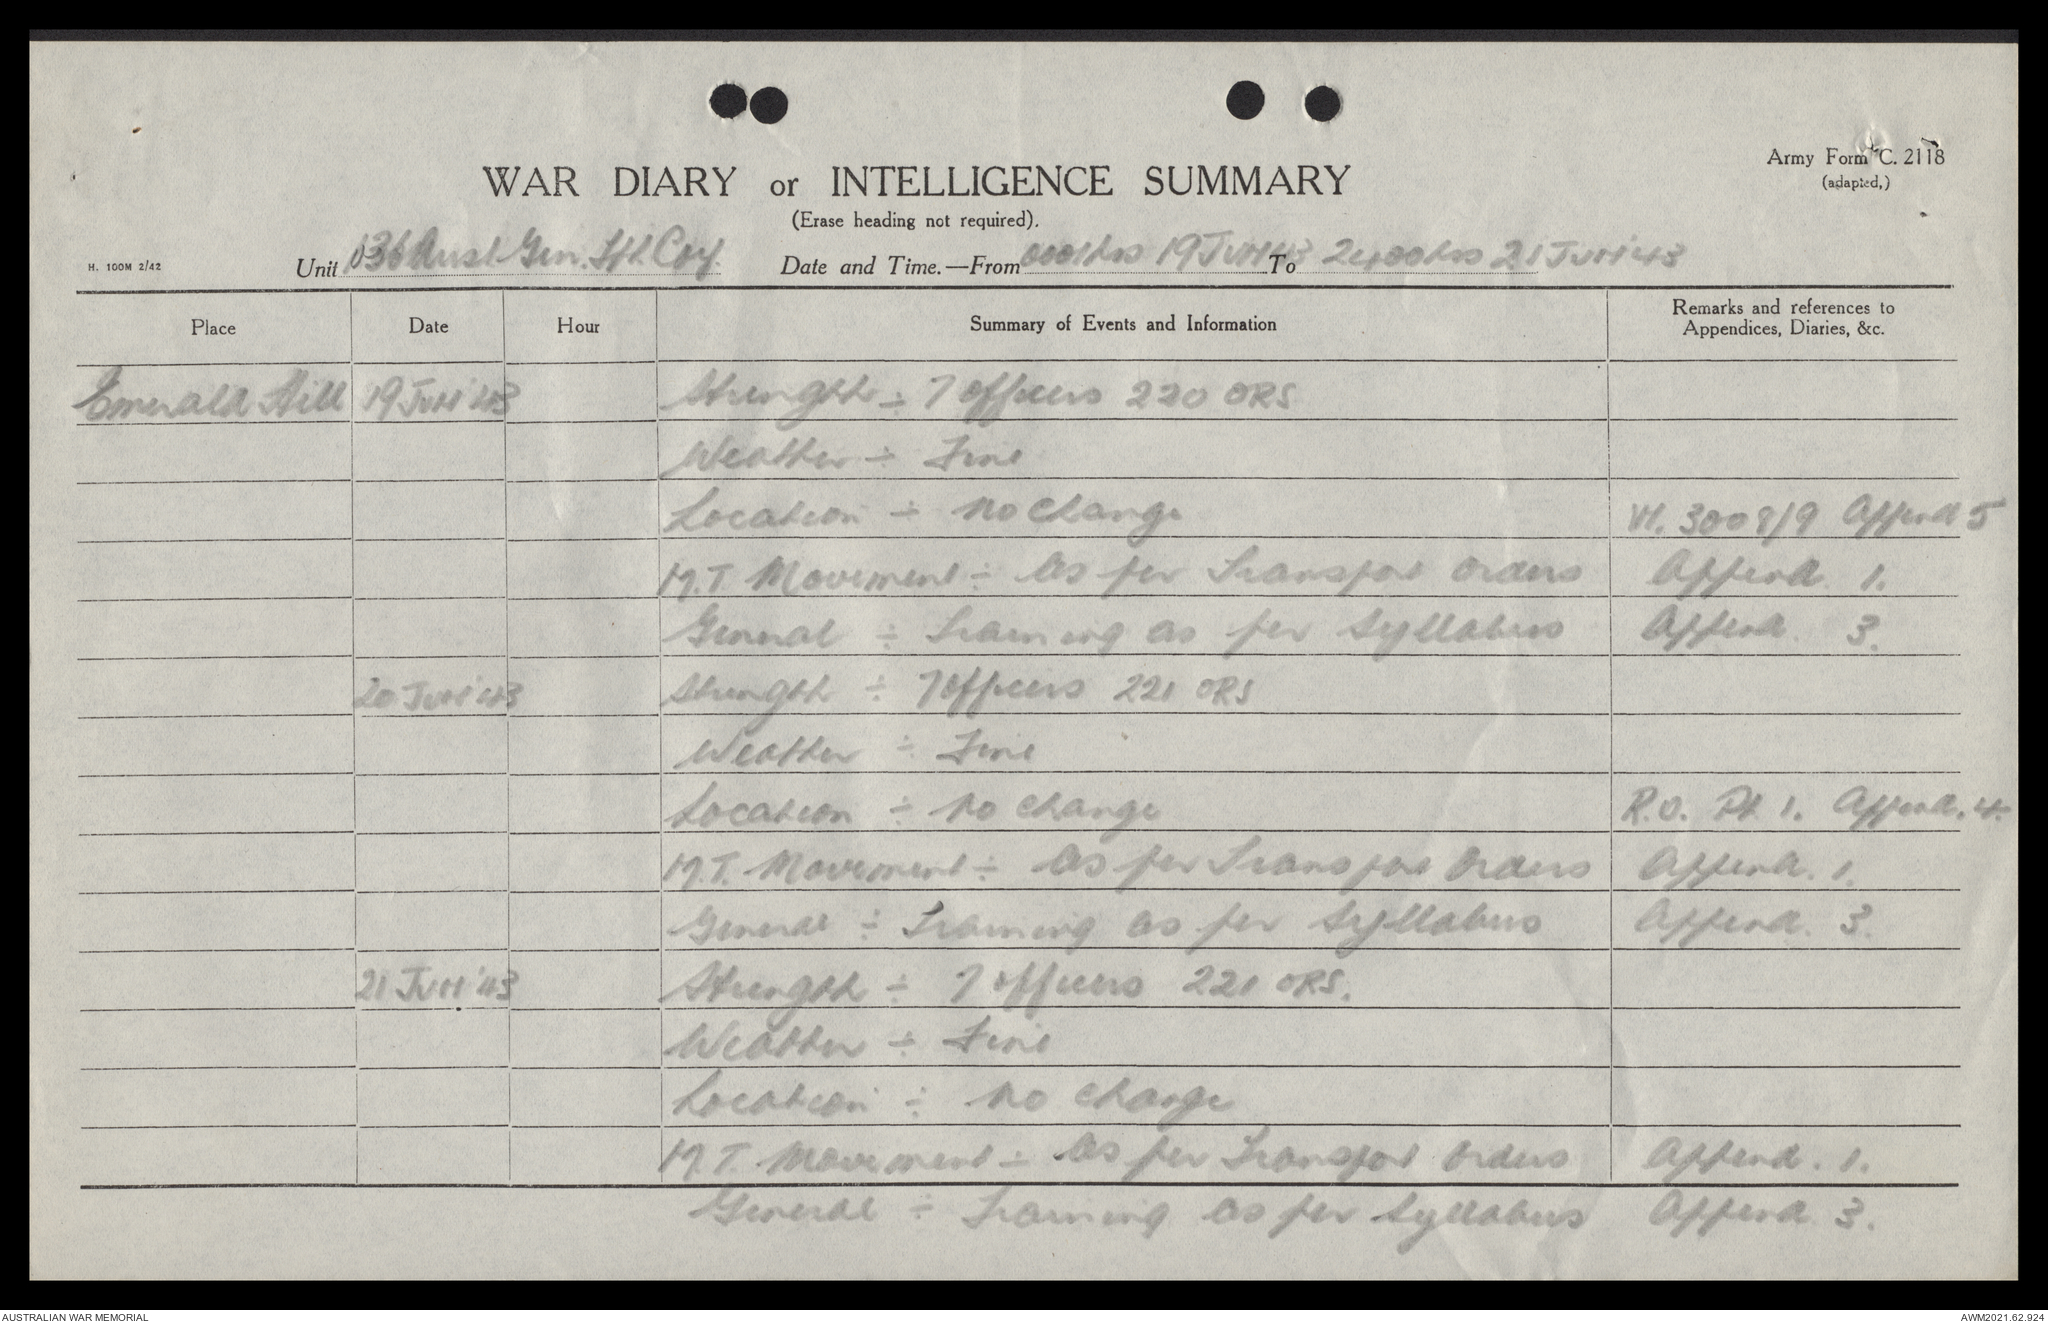 Army Form C. 2118
(adapted,)
WAR DIARY or INTELLIGENCE SUMMARY
(Erase heading not required).
H. 100M 2/42
Unit 136 Aust Gen. Tpt Coy. Date and Time.—From 0001 hrs 19 Jun 43 To 2400 hrs 21 Jun '43
Place Date Hour Summary of Events and Information Remarks and references to Appendices, Diaries, &c.
Emerald Hill 19 Jun '43 Strength ÷ 7 Officers 220 ORS
Weather ÷ Fine
Location ÷ No Change 3008/9 Append 5
M.T. Movement ÷ As per Transport Orders Append. 1.
General ÷ Training as per Syllabus Append. 3.
20 Jun '43 Strength ÷ 7 Officers 221 ORS
Weather ÷ Fine
Location ÷ No Change R.O. Pt 1. Append. 4.
M.T. Movement ÷ As per Transport Orders Append. 1.
General ÷ Training as per Syllabus Append. 3.
21 Jun '43 Strength ÷ 7 Officers 221 ORS.
Weather ÷ Fine
Location ÷ No Change
M.T. Movement ÷ As per Transport Orders Append. 1.
General ÷ Training as per Syllabus Append 3.
AUSTRALIAN WAR MEMORIAL AWM2021.62.924